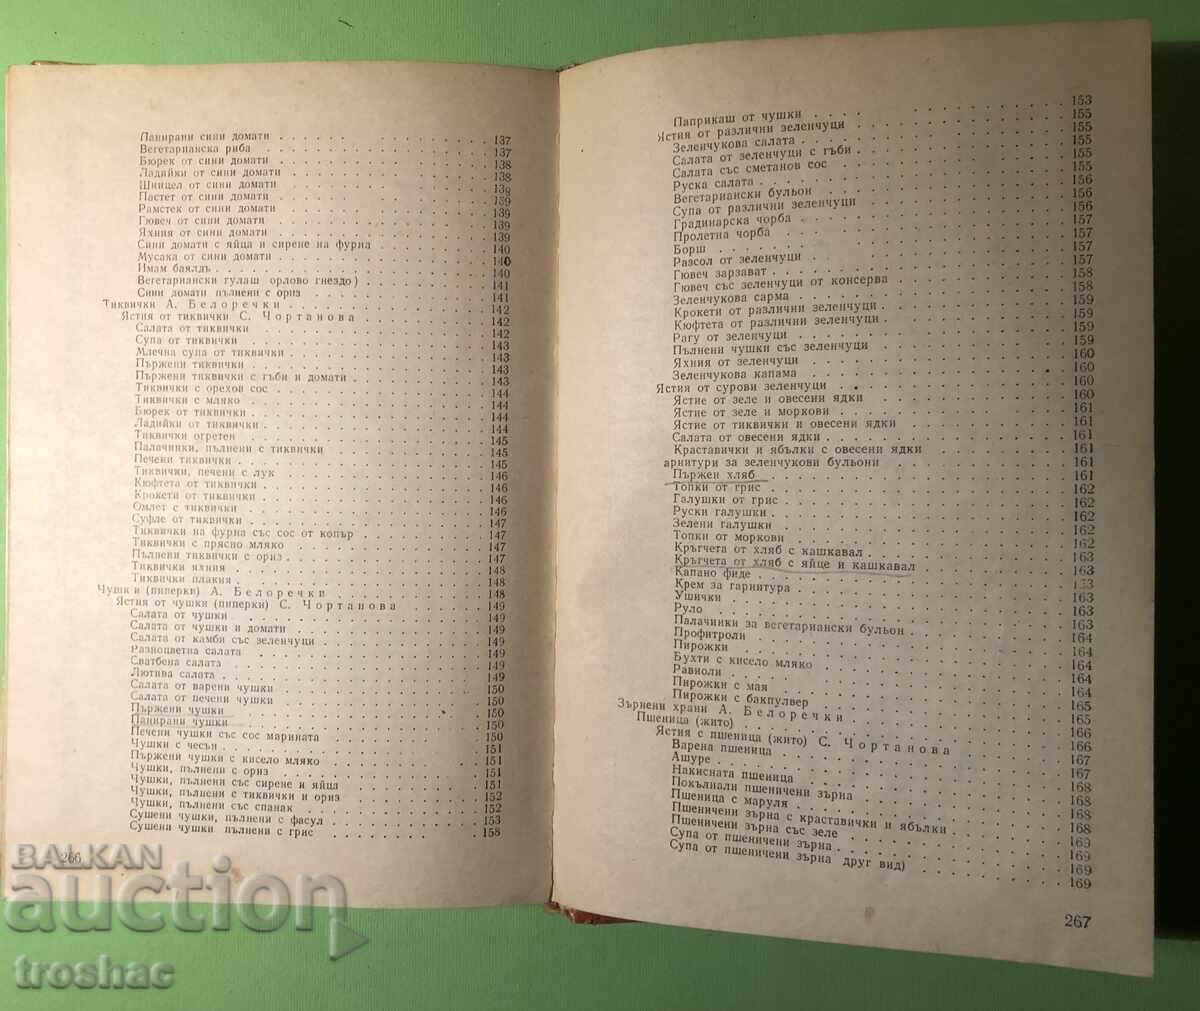 Панирани сини домати . . . 137
Вегетарианска риба . . . 137
Бюрек от сини домати . . . 138
Ладийки от сини домати . . . 138
Шницел от сини домати . . . 138
Пастет от сини домати . . . 139
Рамстек от сини домати . . . 139
Гювеч от сини домати . . . 139
Яхния от сини домати . . . 139
Сини домати с яйца и сирене на фурна . . . 140
Мусака от сини домати . . . 140
Имам баялдъ . . . 140
Вегетариански гулаш орлово гнездо) . . . 141
Сини домати пълнени с ориз . . . 141
Тиквички А. Белоречки . . . 142
Ястия от тиквички С. Чортанова . . . 142
Салата от тиквички . . . 142
Супа от тиквички . . . 143
Млечна супа от тиквички . . . 143
Пържени тиквички . . . 143
Пържени тиквички с гъби и домати . . . 143
Тиквички с орехов сос . . . 144
Тиквички с мляко . . . 144
Бюрек от тиквички . . . 144
Ладийки от тиквички . . . 144
Тиквички огретен . . . 145
Палачинки, пълнени с тиквички . . . 145
Печени тиквички . . . 145
Тиквички, печени с лук . . . 146
Кюфтета от тиквички . . . 146
Крокети от тиквички . . . 146
Омлет с тиквички . . . 146
Суфле от тиквички . . . 147
Тиквички на фурна със сос от копър . . . 147
Тиквички с прясно мляко . . . 147
Пълнени тиквички с ориз . . . 147
Тиквички яхния . . . 148
Тиквички плакия . . . 148
Чушки (пиперки) А. Белоречки . . . 148
Ястия от чушки (пиперки) С. Чортанова . . . 149
Салата от чушки . . . 149
Салата от чушки и домати . . . 149
Салата от камби със зеленчуци . . . 149
Разноцветна салата . . . 149
Сватбена салата . . . 149
Лютива салата . . . 149
Салата от варени чушки . . . 150
Салата от печени чушки . . . 150
Пържени чушки . . . 150
Панирани чушки . . . 150
Печени чушки със сос марината . . . 150
Чушки с чесън . . . 151
Пържени чушки с кисело мляко . . . 151
Чушки, пълнени с ориз . . . 151
Чушки, пълнени със сирене и яйца . . . 151
Чушки, пълнени с тиквички и ориз . . . 152
Чушки, пълнени със спанак . . . 152
Сушени чушки, пълнени с фасул . . . 153
Сушени чушки пълнени с грис . . . 153
266
Паприкаш от чушки . . . 153
Ястия от различни зеленчуци . . . 155
Зеленчукова салата . . . 155
Салата от зеленчуци с гъби . . . 155
Салата със сметанов сос . . . 155
Руска салата . . . 155
Вегетариански бульон . . . 156
Супа от различни зеленчуци . . . 156
Градинарска чорба . . . 156
Пролетна чорба . . . 157
Борш . . . 157
Разсол от зеленчуци . . . 157
Гювеч зарзават . . . 157
Гювеч със зеленчуци от консерва . . . 158
Зеленчукова сарма . . . 158
Крокети от различни зеленчуци . . . 159
Кюфтета от различни зеленчуци . . . 159
Рагу от зеленчуци . . . 159
Пълнени чушки със зеленчуци . . . 159
Яхния от зеленчуци . . . 160
Зеленчукова капама . . . 160
Ястия от сурови зеленчуци . . . 160
Ястие от зеле и овесени ядки . . . 160
Ястие от зеле и моркови . . . 161
Ястие от тиквички и овесени ядки . . . 161
Салата от овесени ядки . . . 161
Краставички и ябълки с овесени ядки . . . 161
арнитури за зеленчукови бульони . . . 161
Пържен хляб . . . 161
Топки от грис . . . 162
Галушки от грис . . . 162
Руски галушки . . . 162
Зелени галушки . . . 162
Топки от моркови . . . 162
Кръгчета от хляб с кашкавал . . . 163
Кръгчета от хляб с яйце и кашкавал . . . 163
Капано фиде . . . 163
Крем за гарнитура . . . 163
Ушички . . . 163
Руло . . . 163
Палачинки за вегетариански бульон . . . 164
Профитроли . . . 164
Пирожки . . . 164
Бухти с кисело мляко . . . 164
Равиоли . . . 164
Пирожки с мая . . . 165
Пирожки с бакпулвер . . . 165
Зърнени храни А. Белоречки . . . 166
Пшеница (жито) . . . 166
Ястия с пшеница (жито) С. Чортанова . . . 167
Варена пшеница . . . 167
Ашуре . . . 168
Накисната пшеница . . . 168
Покълнали пшеничени зърна . . . 168
Пшеница с маруля . . . 168
Пшеничени зърна с краставички и ябълки . . . 169
Пшеничени зърна със зеле . . . 169
Супа от пшеничени зърна . . . 169
Супа от пшеничени зърна друг вид) . . . 169
267
BALKAN
auction
troshac